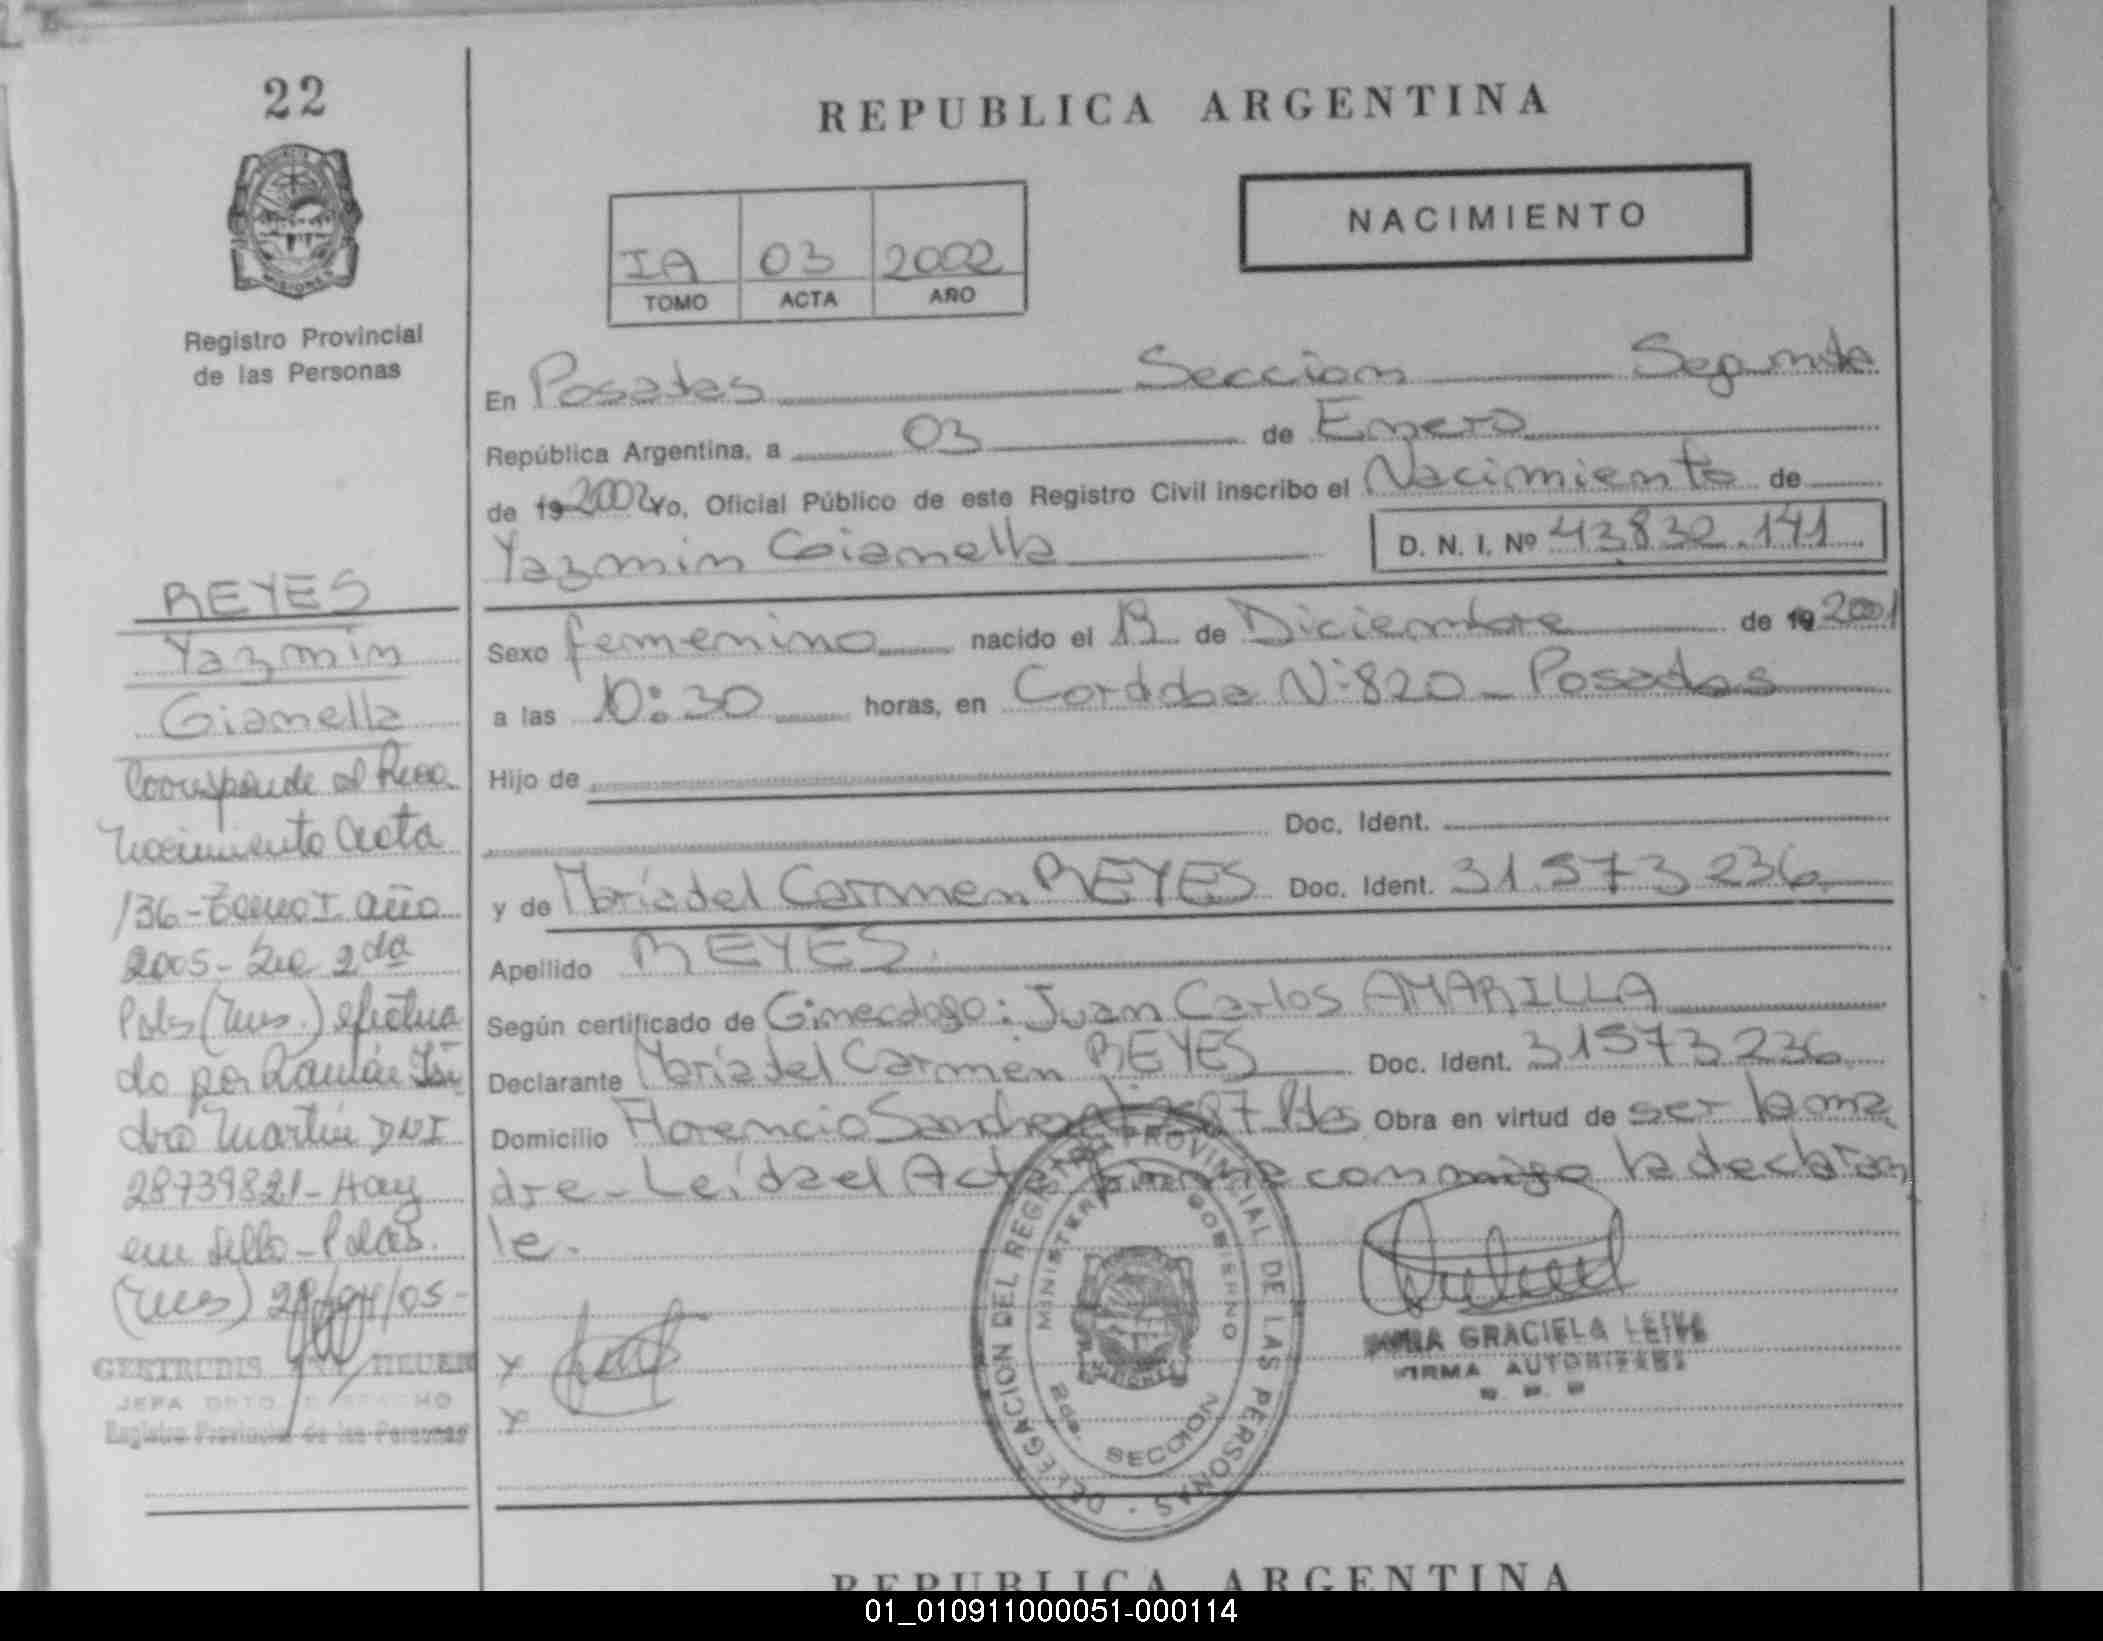 22
Registro Provincial
de las Personas
REYES
Yazmin
Gianella
Corresponde al Reco.
Nacimiento Acta
136-Tomo I año
2005- 2da
Pdas (Mnes.) efectua
do por Ramón Isi
dro Martin DNI
28739821- Hay
un sello-Pdas.
(Mnes) 28/04/05-
GERTRUDIS
JEFA DPTO
Registro Provincial de las Personas
REPUBLICA ARGENTINA
NACIMIENTO
IA 03 2002
TOMO ACTA AÑO
En Posadas Seccion Segunda
República Argentina, a 03 de Enero
de 19 2002 Yo, Oficial Público de este Registro Civil inscribo el Nacimiento de
Yazmin Gianella D. N. I. Nº 43.832.141
Sexo femenino nacido el 19 de Diciembre de 19 2001
a las 10:30 horas, en Cordoba Nº 820 - Posadas
Hijo de
Doc. Ident.
y de María del Carmen REYES Doc. Ident. 31.573.236
Apellido REYES.
Según certificado de Ginecologo: Juan Carlos AMARILLA
Declarante María del Carmen REYES Doc. Ident. 31573236
Domicilio Florencio Sanchez 87 Pdas Obra en virtud de ser la ma
dre- Leída el Acta firma conmigo la declaran
te.
DELEGACION DEL REGISTRO PROVINCIAL DE LAS PERSONAS
MINISTERIO GOBIERNO
2da. SECCION
MISIONES
GRACIELA LEIVA
FIRMA AUTORIZADA
REPUBLICA ARGENTINA
01_010911000051-000114